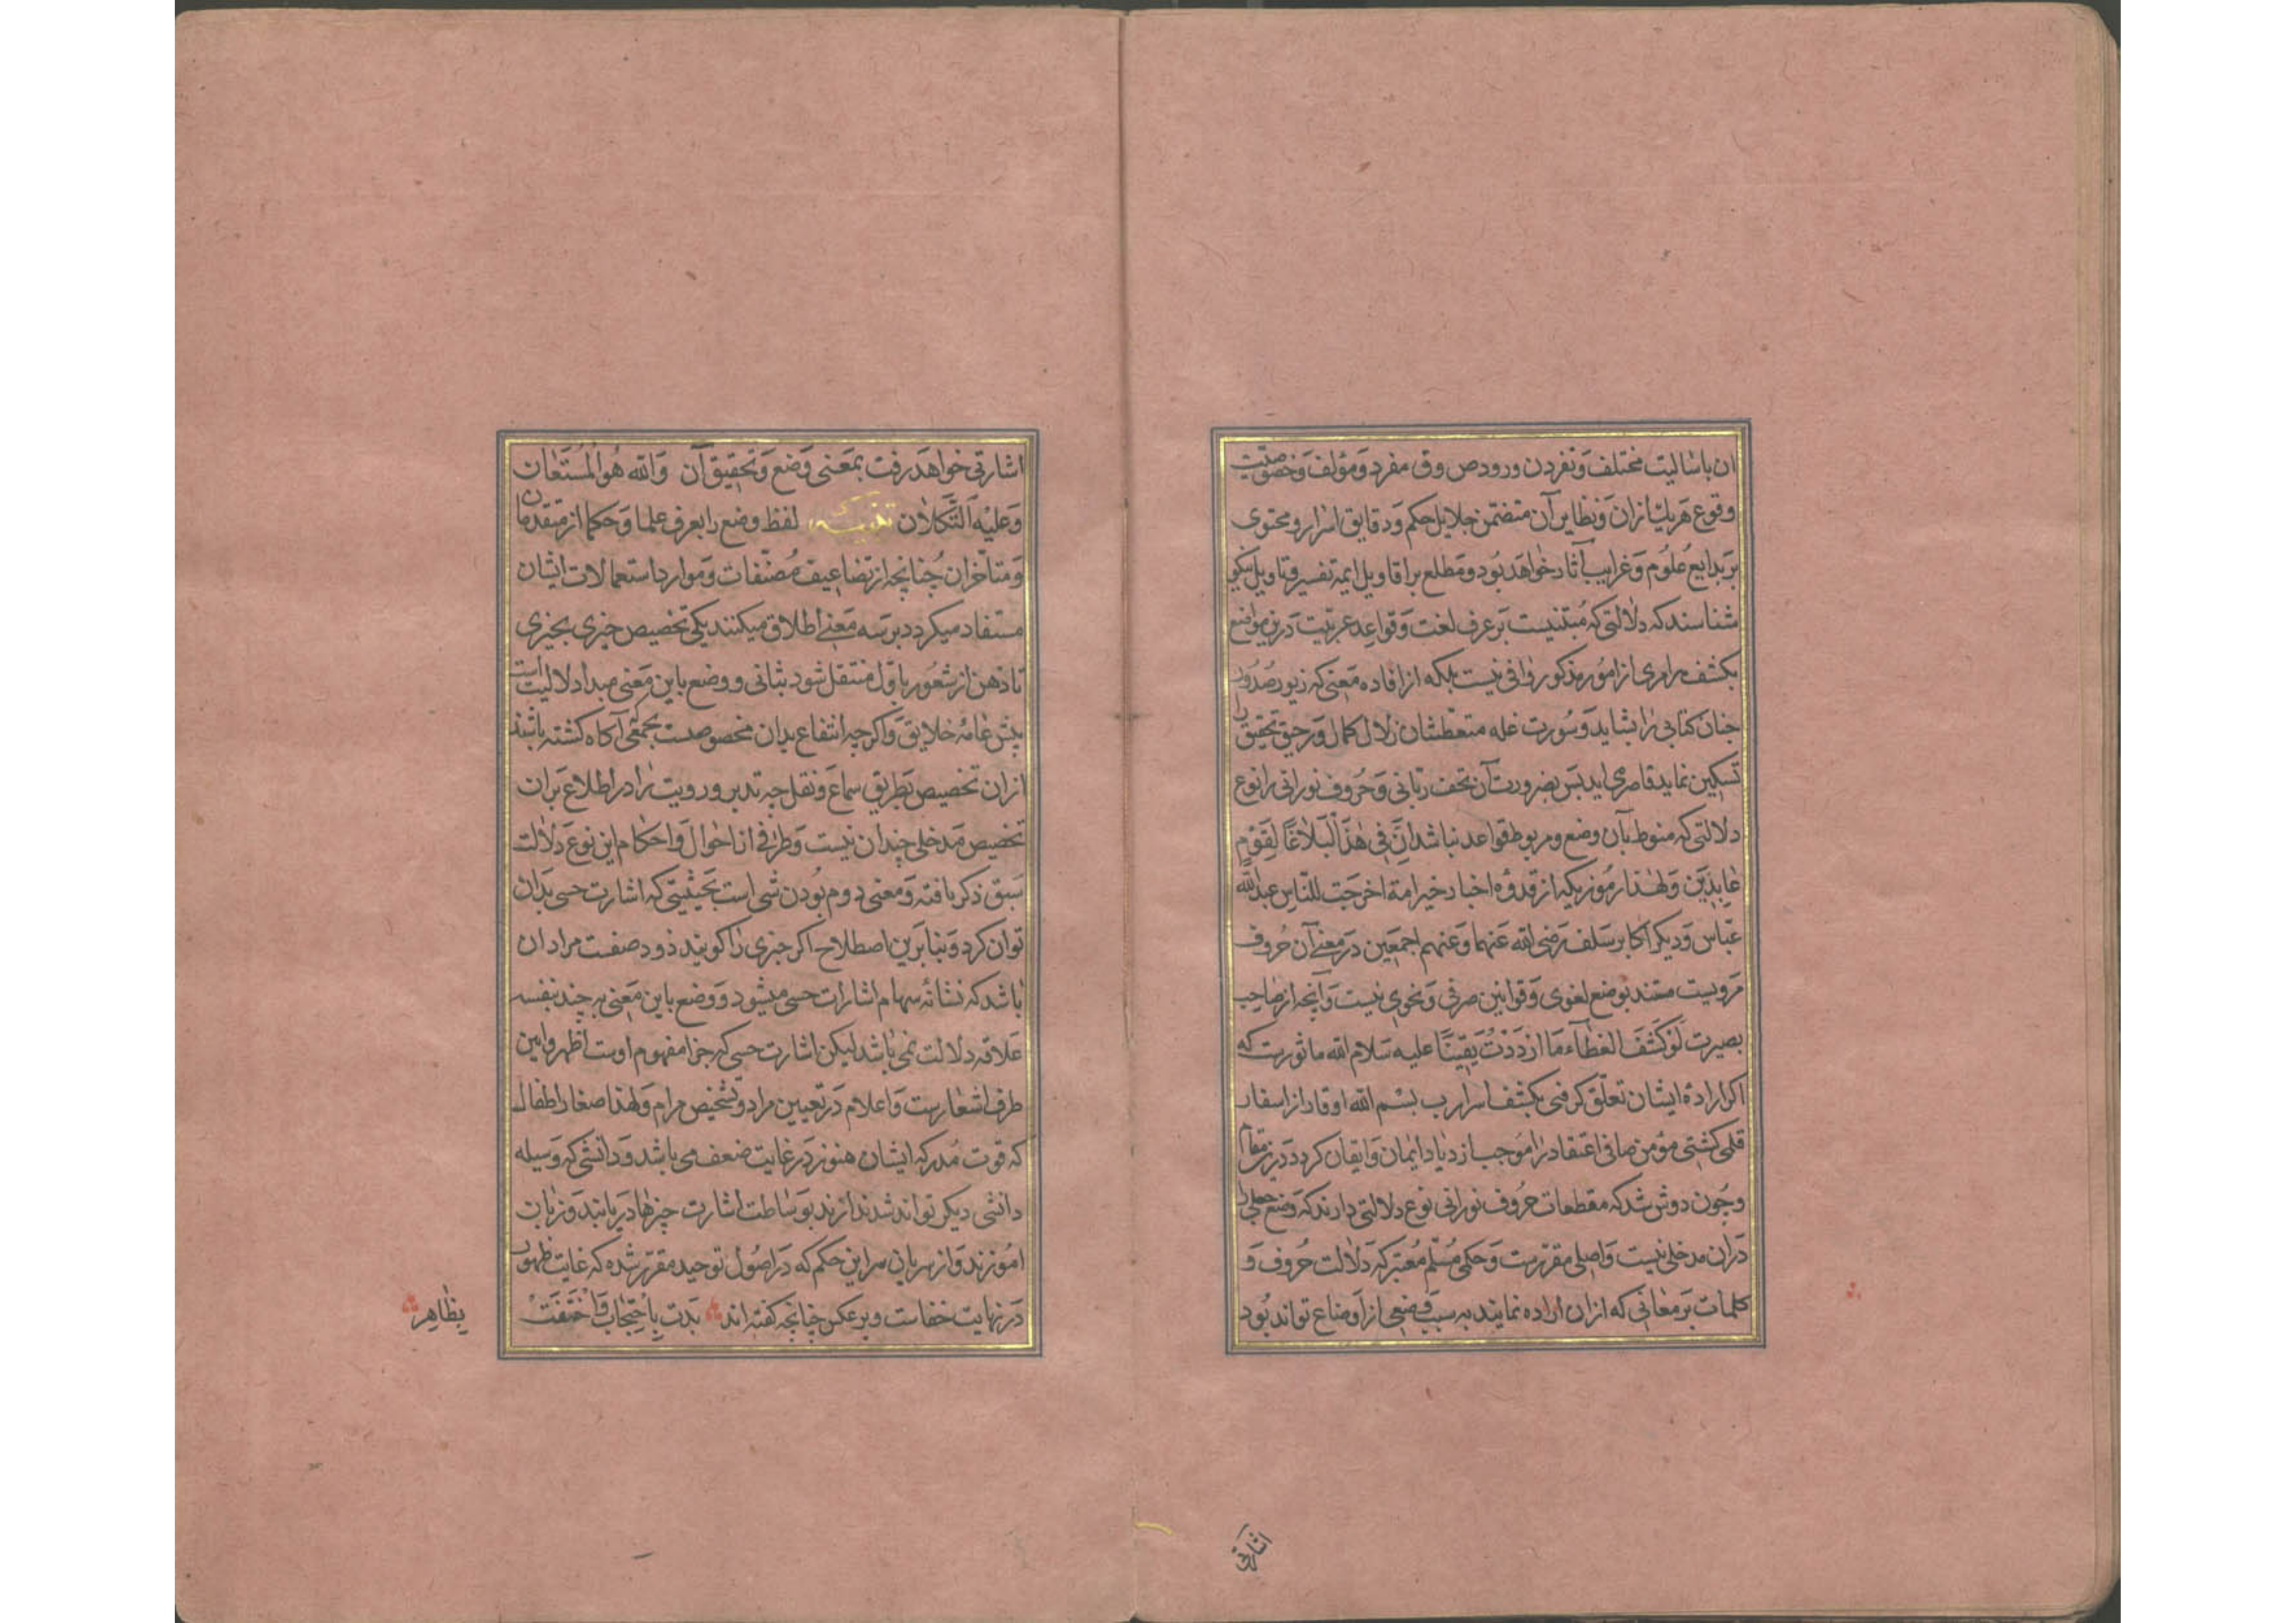 ان باسالیت مختلف و نفردن ورود ص و ق مفرد و مؤلف و خصوصیت
وقوع هریک ازان و نظایر آن متضمن جلایل حکم و دقایق اسرار و محتوی
بر بدایع علوم و غرایب آثار خواهد بود و مطلع بر اقاویل ایمه تفسیر و تاویل نیکو
شناسند که دلالتی که مبتنیست بر عرف لغت و قواعد عربیت درین مواضع
بکشف مرامی از امور مذکور وافی نیست بلکه از افاده معنی که زیور صدور
جنان کتابی را شاید و سورت غله متعطشان زلال کمال و رحیق تحقیق را
تسکین نماید قاصر می اید بس بضرورت آن تحف ربانی و حروف نورانی را نوع
دلالتی که منوط بآن وضع و مربوط قواعد نباشد اِنَّ فِی هٰذَا لَبَلَاغًا لِقَوْمٍ
عٰابِدِینَ و لهذا رموزیکه از قدوه اخبار خیر امة اخرجت للناس عبدالله
عباس و دیکر اکابر سلف رضی الله عنهما و عنهم اجمعین در معنی آن حروف
مرویست مستند بوضع لغوی و قوانین صرفی و نحوی نیست و آنچه از صاحب
بصیرت لَوْ کَشَفَ الغطآء مَا ازْدَدْتُ یَقِینًا علیه سلام الله ماثورست که
اکر ارادهٔ ایشان تعلّق کرفتی بکشف اسرار ب بسم الله اوقار از اسفار
قلمی کشتی مؤمن صافی اعتقاد را موجب ازدیاد ایمان و ایقان کردد درین مقام
و چون روشن شد که مقطعات حروف نورانی نوع دلالتی دارند که وضع جعلی را
دران مدخلی نیست و اصلی مقررست و حکمی مُسلّم مُعتبر که دلالت حروف و
کلمات بر معانی که ازان اراده نمایند به سبب وضعی از اوضاع تواند بود
اشارتی
اشارتی خواهد رفت بمعنی وضع و تحقیق آن و الله هُوَ المُستَعَان
وَعلَیْه التَّکلَان تذنیب لفظ وضع را بعرف علما و حکما از متقدمان
و متاخران چنانچه از تضاعیف مُصنّفات و موارد استعمالات ایشان
مستفاد میکردد بر سه معنی اطلاق میکنند یکی تخصیص چیزی بچیزی
تا ذهن از شعور باوّل منتقل شود بثانی و وضع باین معنی مبدا دلالیت است
پیش عامهٔ خلایق و اکرچه انتفاع بدان مخصوصست بجمعی آکاه کشته باشند
ازان تخصیص بطریق سماع و نقل چه تدبر و رویت را در اطلاع بران
تخصیص مدخلی چندان نیست و طرفی از احوال و احکام این نوع دلالت
سبق ذکر یافته و معنی دوم بودن شی است بحیثیتی که اشارت حسی بدان
توان کرد و بنابرین اصطلاح اکر چیزی را کویند ذو وضعست مراد ان
باشد که نشانهٔ سهام اشارات حسی میشود و وضع باین معنی هر چند بنفسه
علاقه دلالت نمی باشد لیکن اشارت حسی که جزا مفهوم اوست اظهر و ابین
طرف اشعارست و اعلام در تعیین مراد و تشخیص مرام و لهذا صغار اطفال
که قوت مُدرکه ایشان هنوز در غایت ضعف می باشد و دانشی که وسیله
دانشی دیکر تواند شد ندارند بوساطت اشارت چیزها دریابند و زبان
اموزند و از سریان سر این حکم که در اصُول توحید مقرر شده که غایت ظهور
در نهایت خفاست و برعکس چنانچه کفته اند بَدت بِاحتِجاب وَاخْتَفَتْ
بِظَاهِر